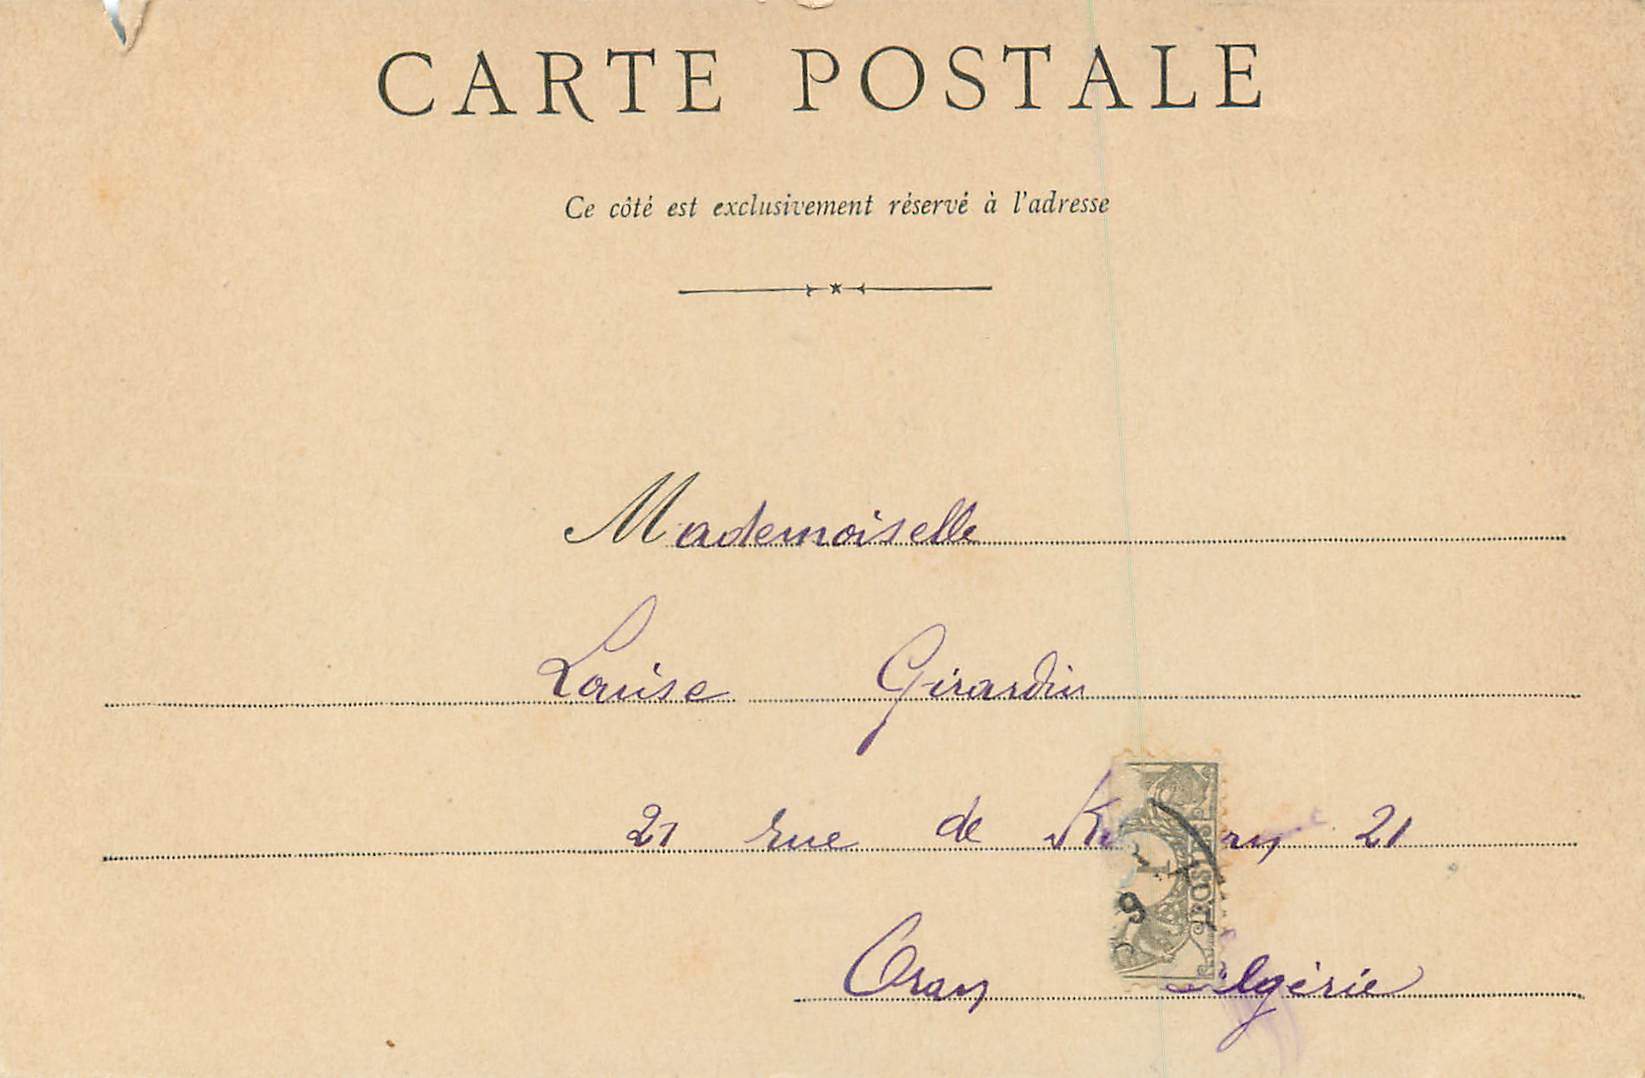 CARTE POSTALE
Ce côté est exclusivement réservé à l'adresse
Mademoiselle
Louise Girardin
21 rue de 21
Oran Algérie
POST
9